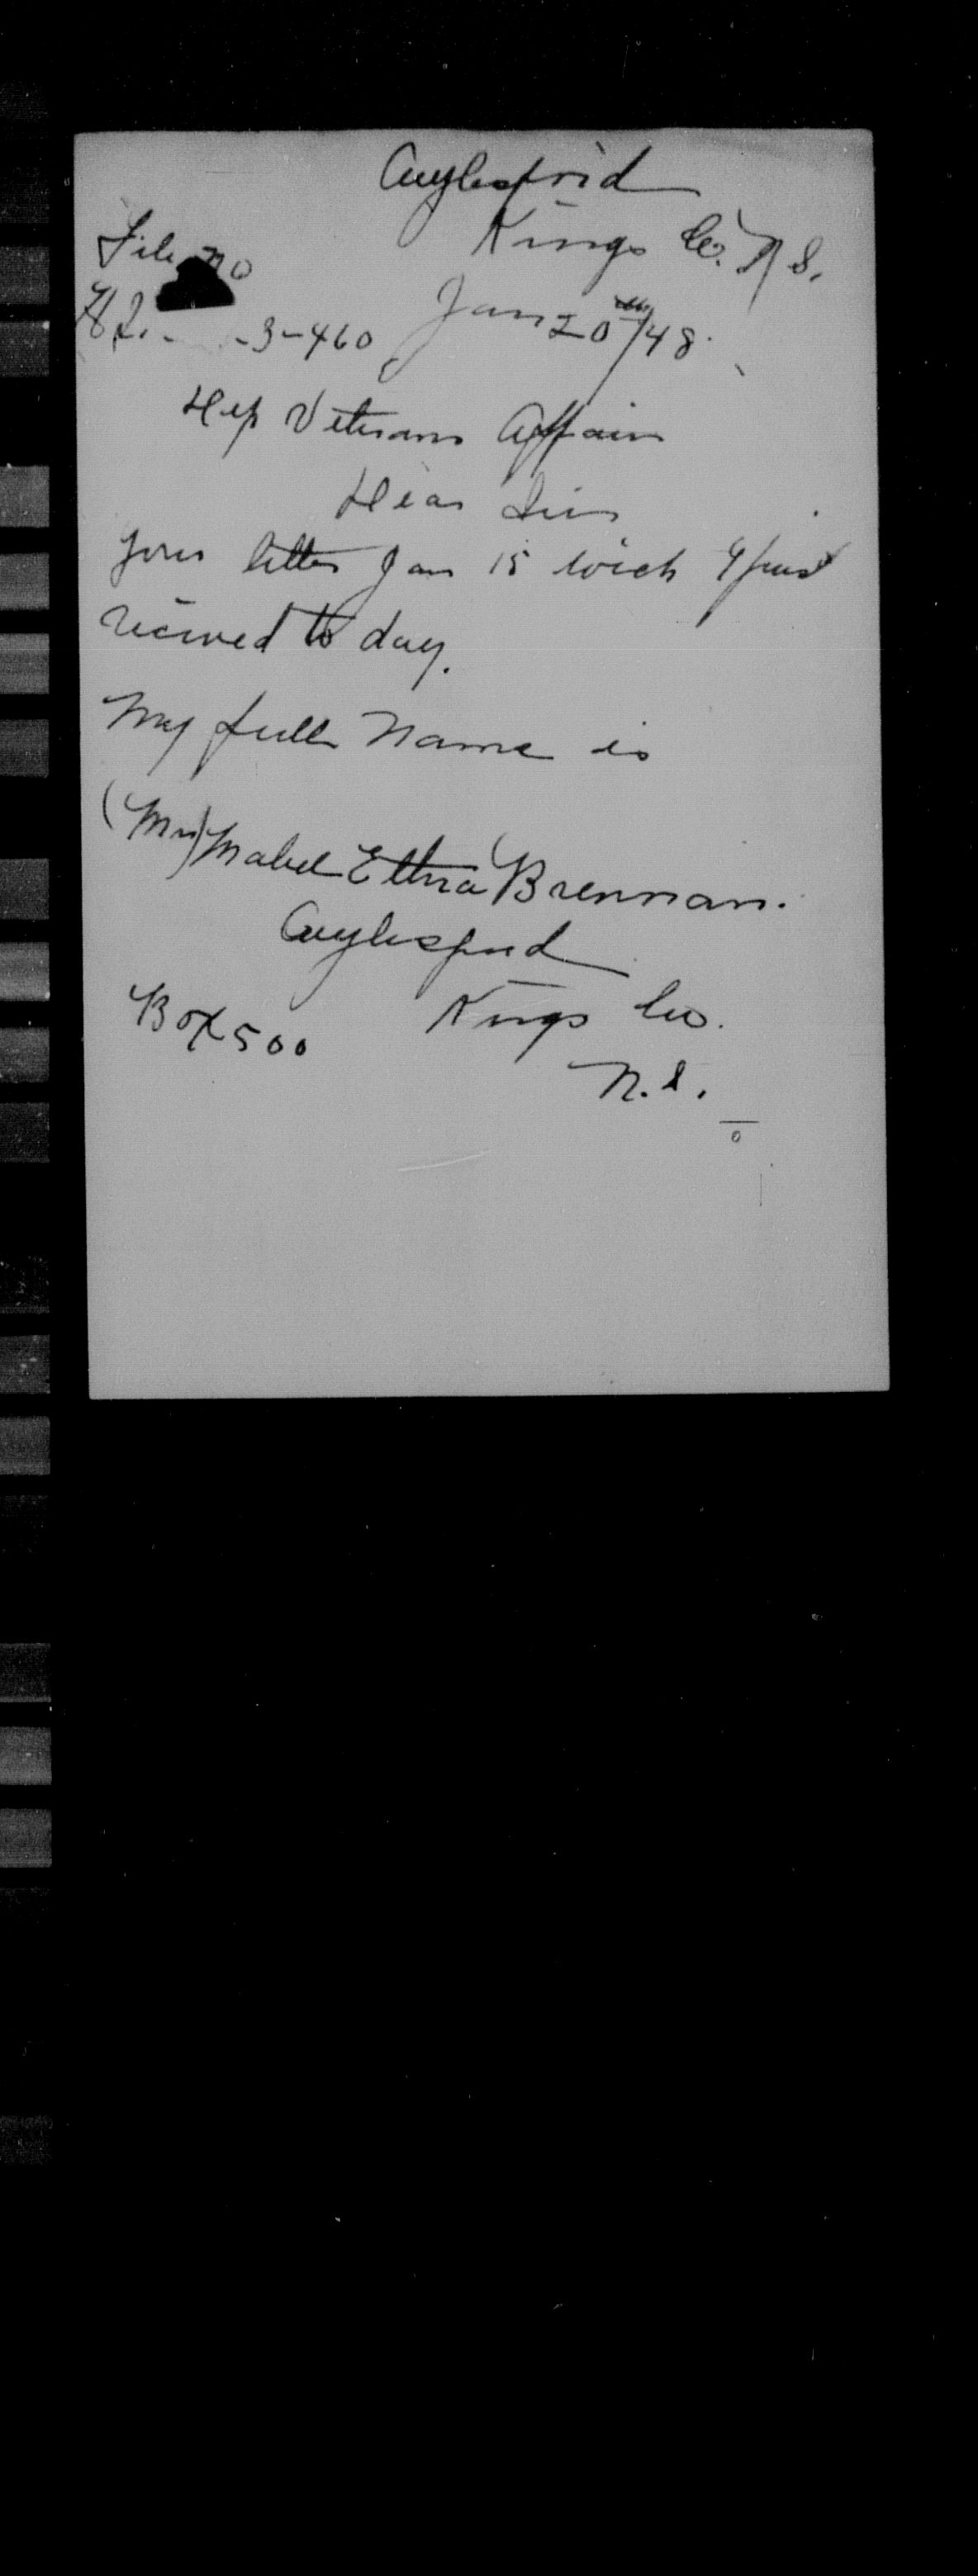 Aylesford
Kings Co. N S.
File no
H.Q. - 3-460
Jan 20th/48.
Dep Veterans Affairs
Dear Sirs
Your letter Jan 15 wich I just
recived to day.
My full Name is
(Mrs) Mabel Ethna Brennan.
Aylesford
Box 500 Kings Co.
N.S.